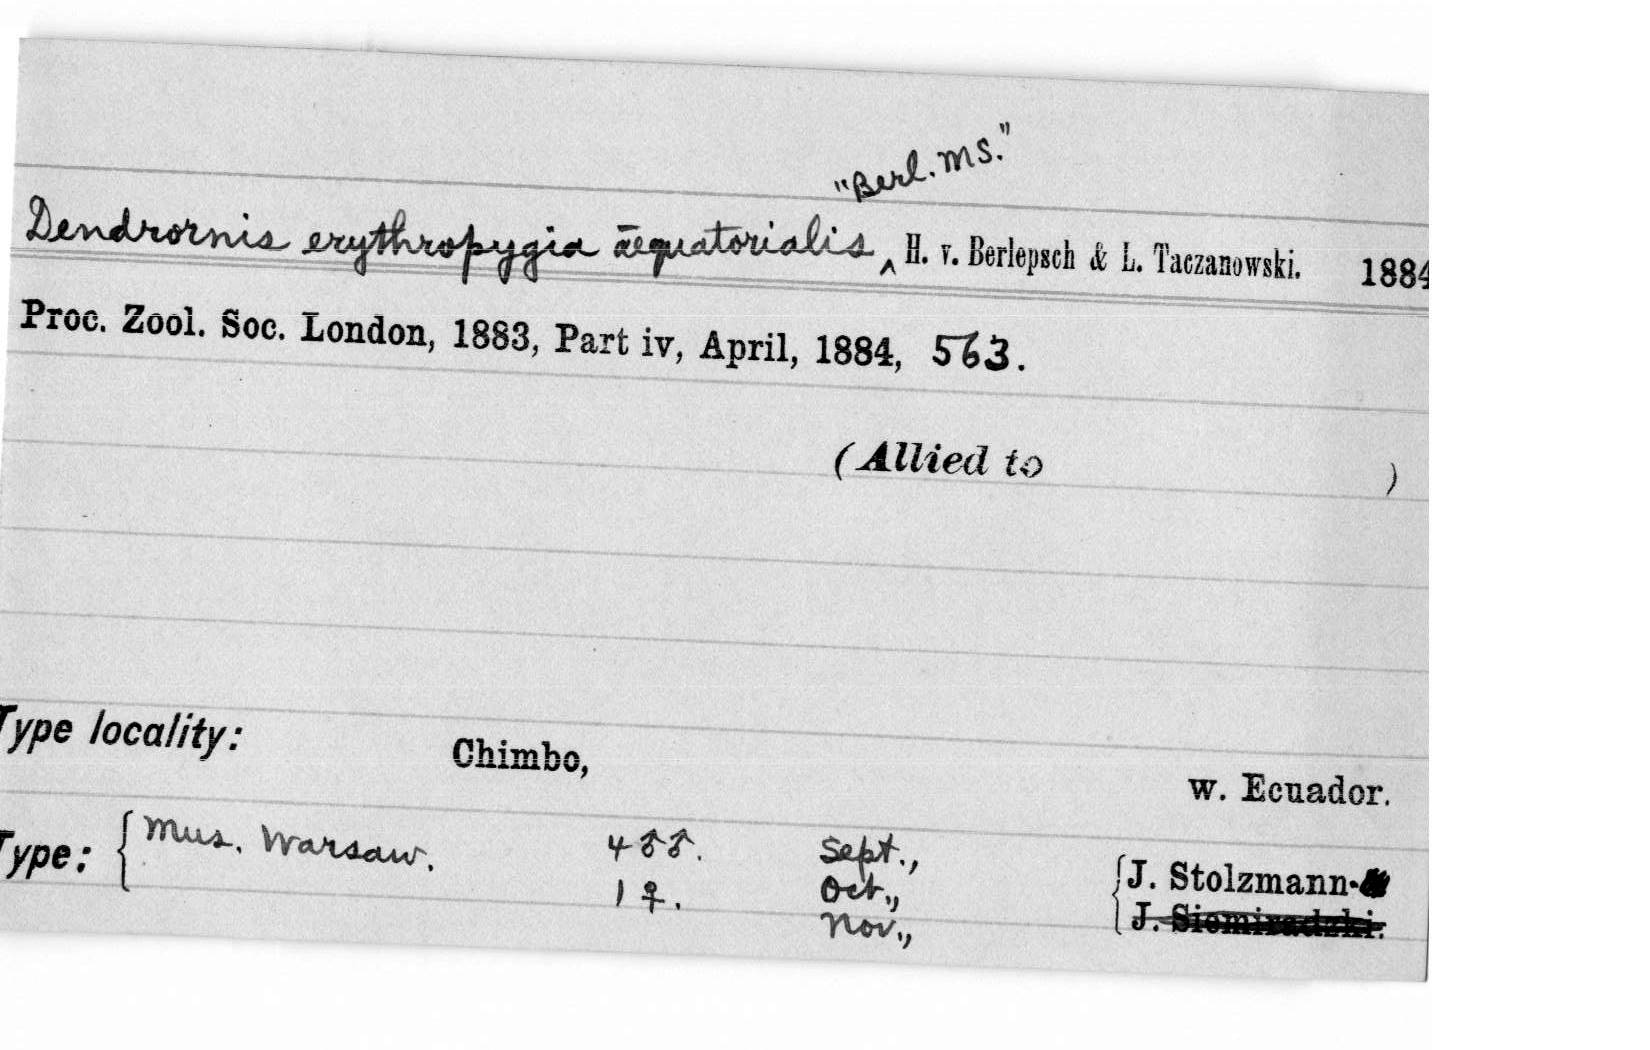 "Berl. MS."
Dendrornis erythropygia æquatorialis ‸ H. v. Berlepsch & L. Taczanowski. 1884
Proc. Zool. Soc. London, 1883, Part iv, April, 1884, 563.
(Allied to )
Type locality: Chimbo, w. Ecuador.
Type: { Mus. Warsaw. 4 ♂♂. Sept., { J. Stolzmann
1 ♀. Oct.,
Nov., J. Siemiradzki.